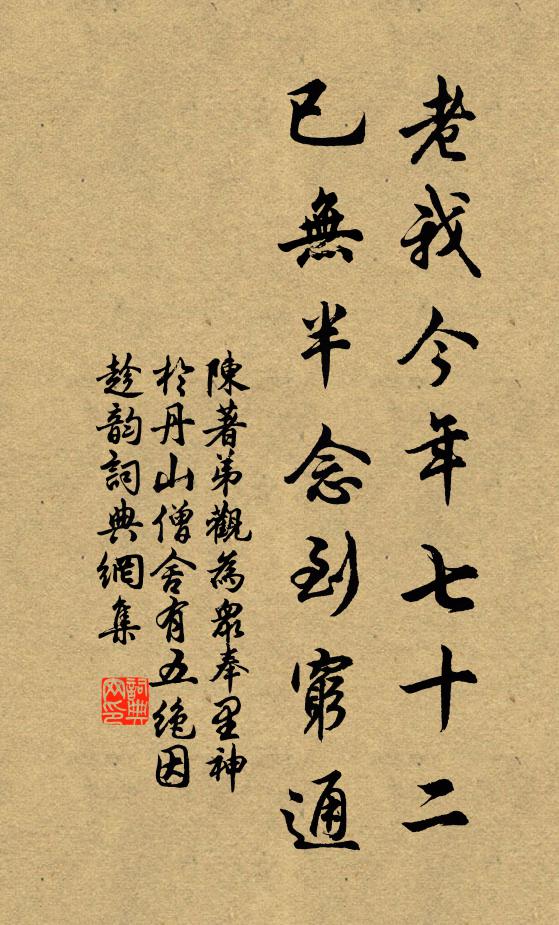 老我今年七十二
已無半念到窮通
陳著弟觀為眾奉里神
於丹山僧舍有五絶因
趁韵詞典網集
詞典
网印